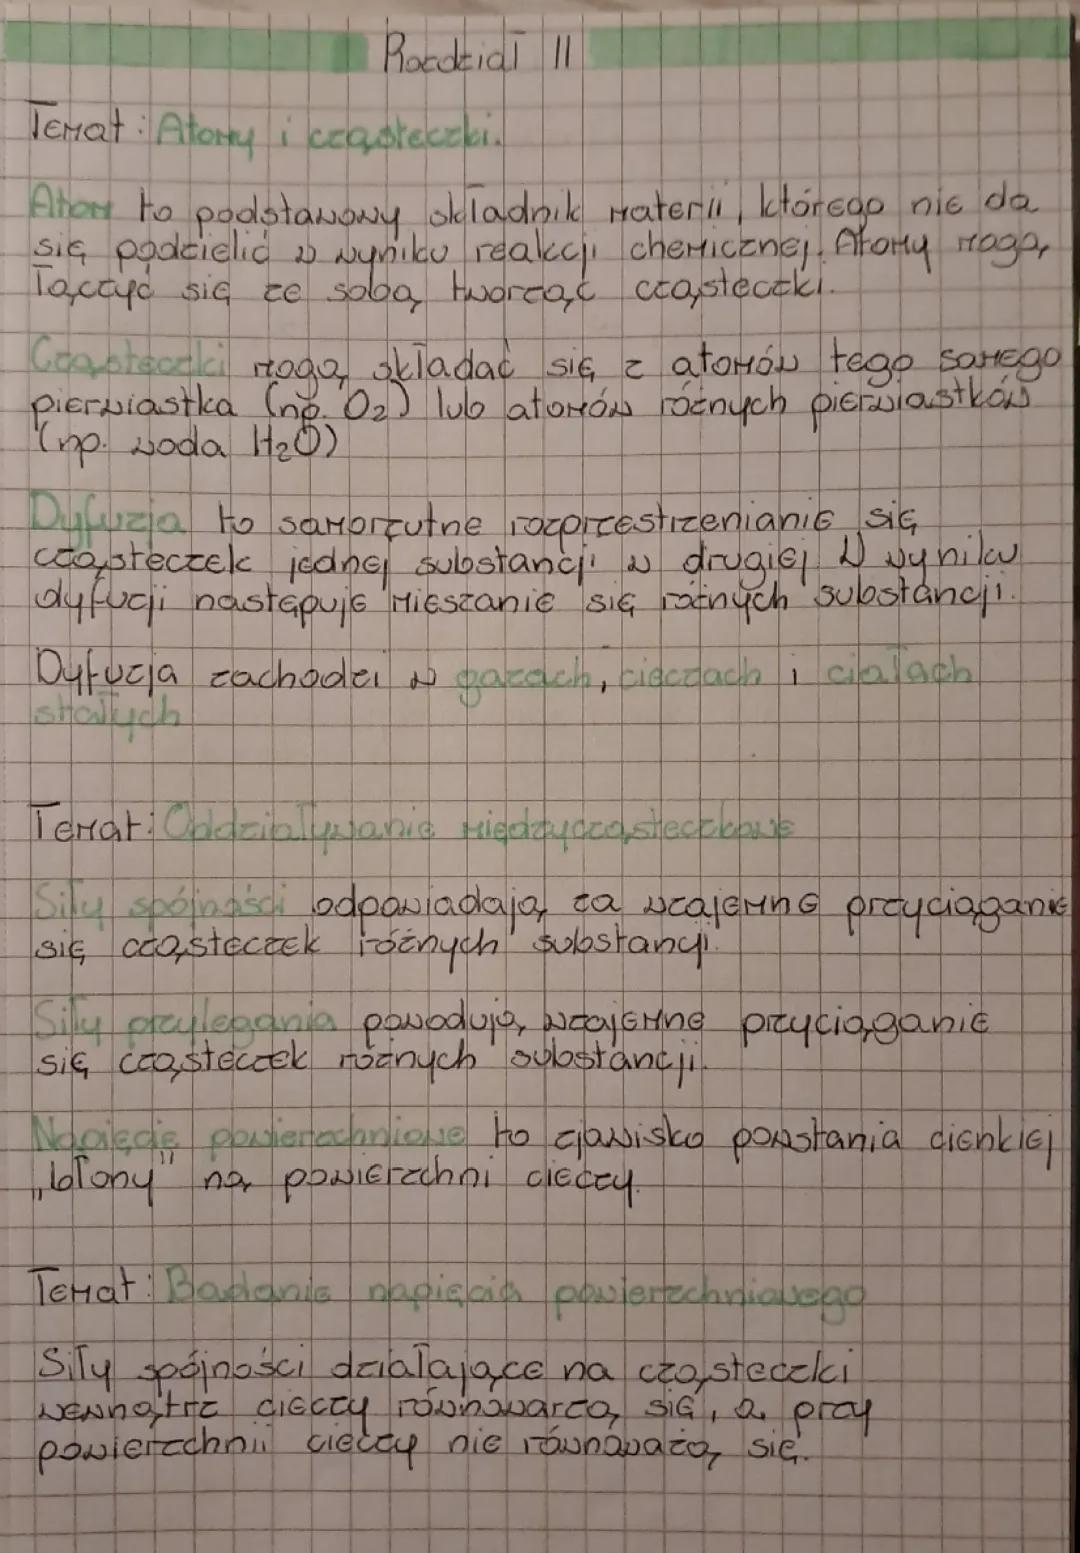 Rozdział II
Temat: Atomy i cząsteczki.
Atom to podstawowy składnik materii, którego nie da
się podzielić w wyniku reakcji chemicznej. Atomy mogą
łączyć się ze sobą tworząc cząsteczki.
Cząsteczki mogą składać się z atomów tego samego
pierwiastka (np. O2) lub atomów różnych pierwiastków
(np. woda H2O)
Dyfuzja to samorzutne rozprzestrzenianie się
cząsteczek jednej substancji w drugiej W wyniku
dyfuzji następuje mieszanie się różnych substancji.
Dyfuzja zachodzi w gazach, cieczach i ciałach
stałych
Temat: Oddziaływanie międzycząsteczkowe
Siły spójności odpowiadają za wzajemne przyciąganie
się cząsteczek różnych substancji.
Siły przylegania powodują wzajemne przyciąganie
się cząsteczek różnych substancji.
Napięcie powierzchniowe to zjawisko powstania cienkiej
„błony" na powierzchni cieczy.
Temat: Badanie napięcia powierzchniowego
Siły spójności działające na cząsteczki
wewnątrz cieczy równowarzą się, a przy
powierzchnii cieczy nie równoważą się.